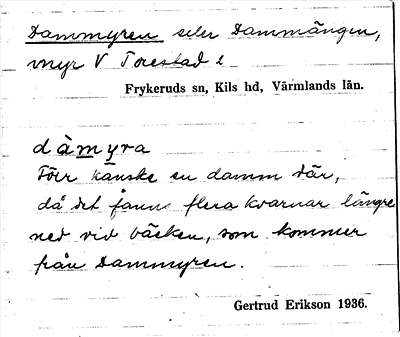 Dammyren eller Dammängen,
myr V Torestad i
Frykeruds sn, Kils hd, Värmlands län.
dàmyra
Förr kanske en damm där,
då det fanns flera kvarnar längre
ned vid bäcken, som kommer
från Dammyren.
Gertrud Erikson 1936.